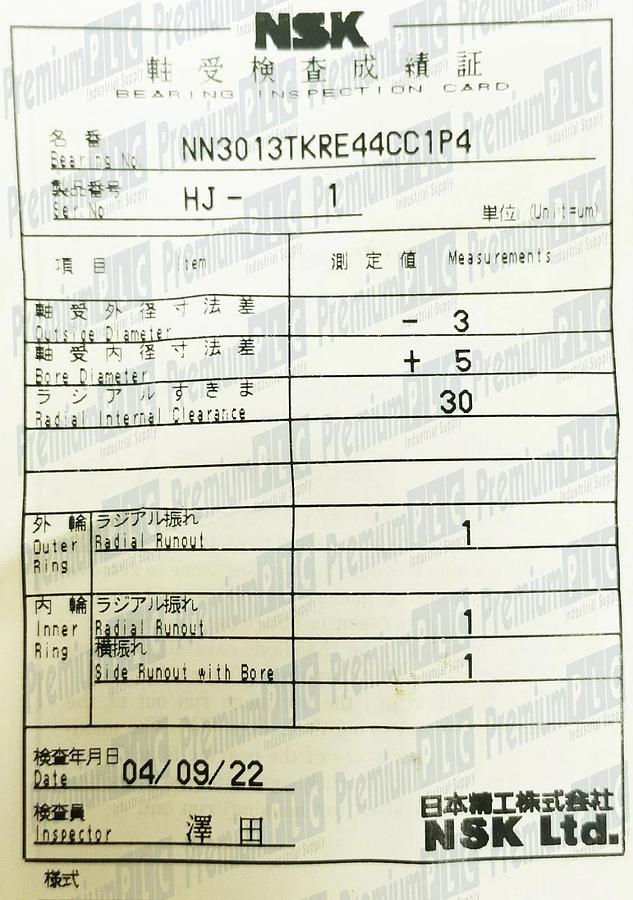 NSK
軸受検査成績証
BEARING INSPECTION CARD
名番
Bearing No. NN3013TKRE44CC1P4
製品番号
Ser.No HJ- 1
単位 (Unit=um)
項目 Item 測定値 Measurements
軸受外径寸法差
Outside Diameter - 3
軸受内径寸法差
Bore Diameter + 5
ラジアルすきま
Radial Internal Clearance 30
外輪 ラジアル振れ
Outer Radial Runout 1
Ring
内輪 ラジアル振れ
Inner Radial Runout 1
Ring 横振れ
Side Runout with Bore 1
検査年月日
Date 04/09/22
検査員
Inspector 澤田
日本精工株式会社
NSK Ltd.
様式
PremiumPLC
Industrial Supply